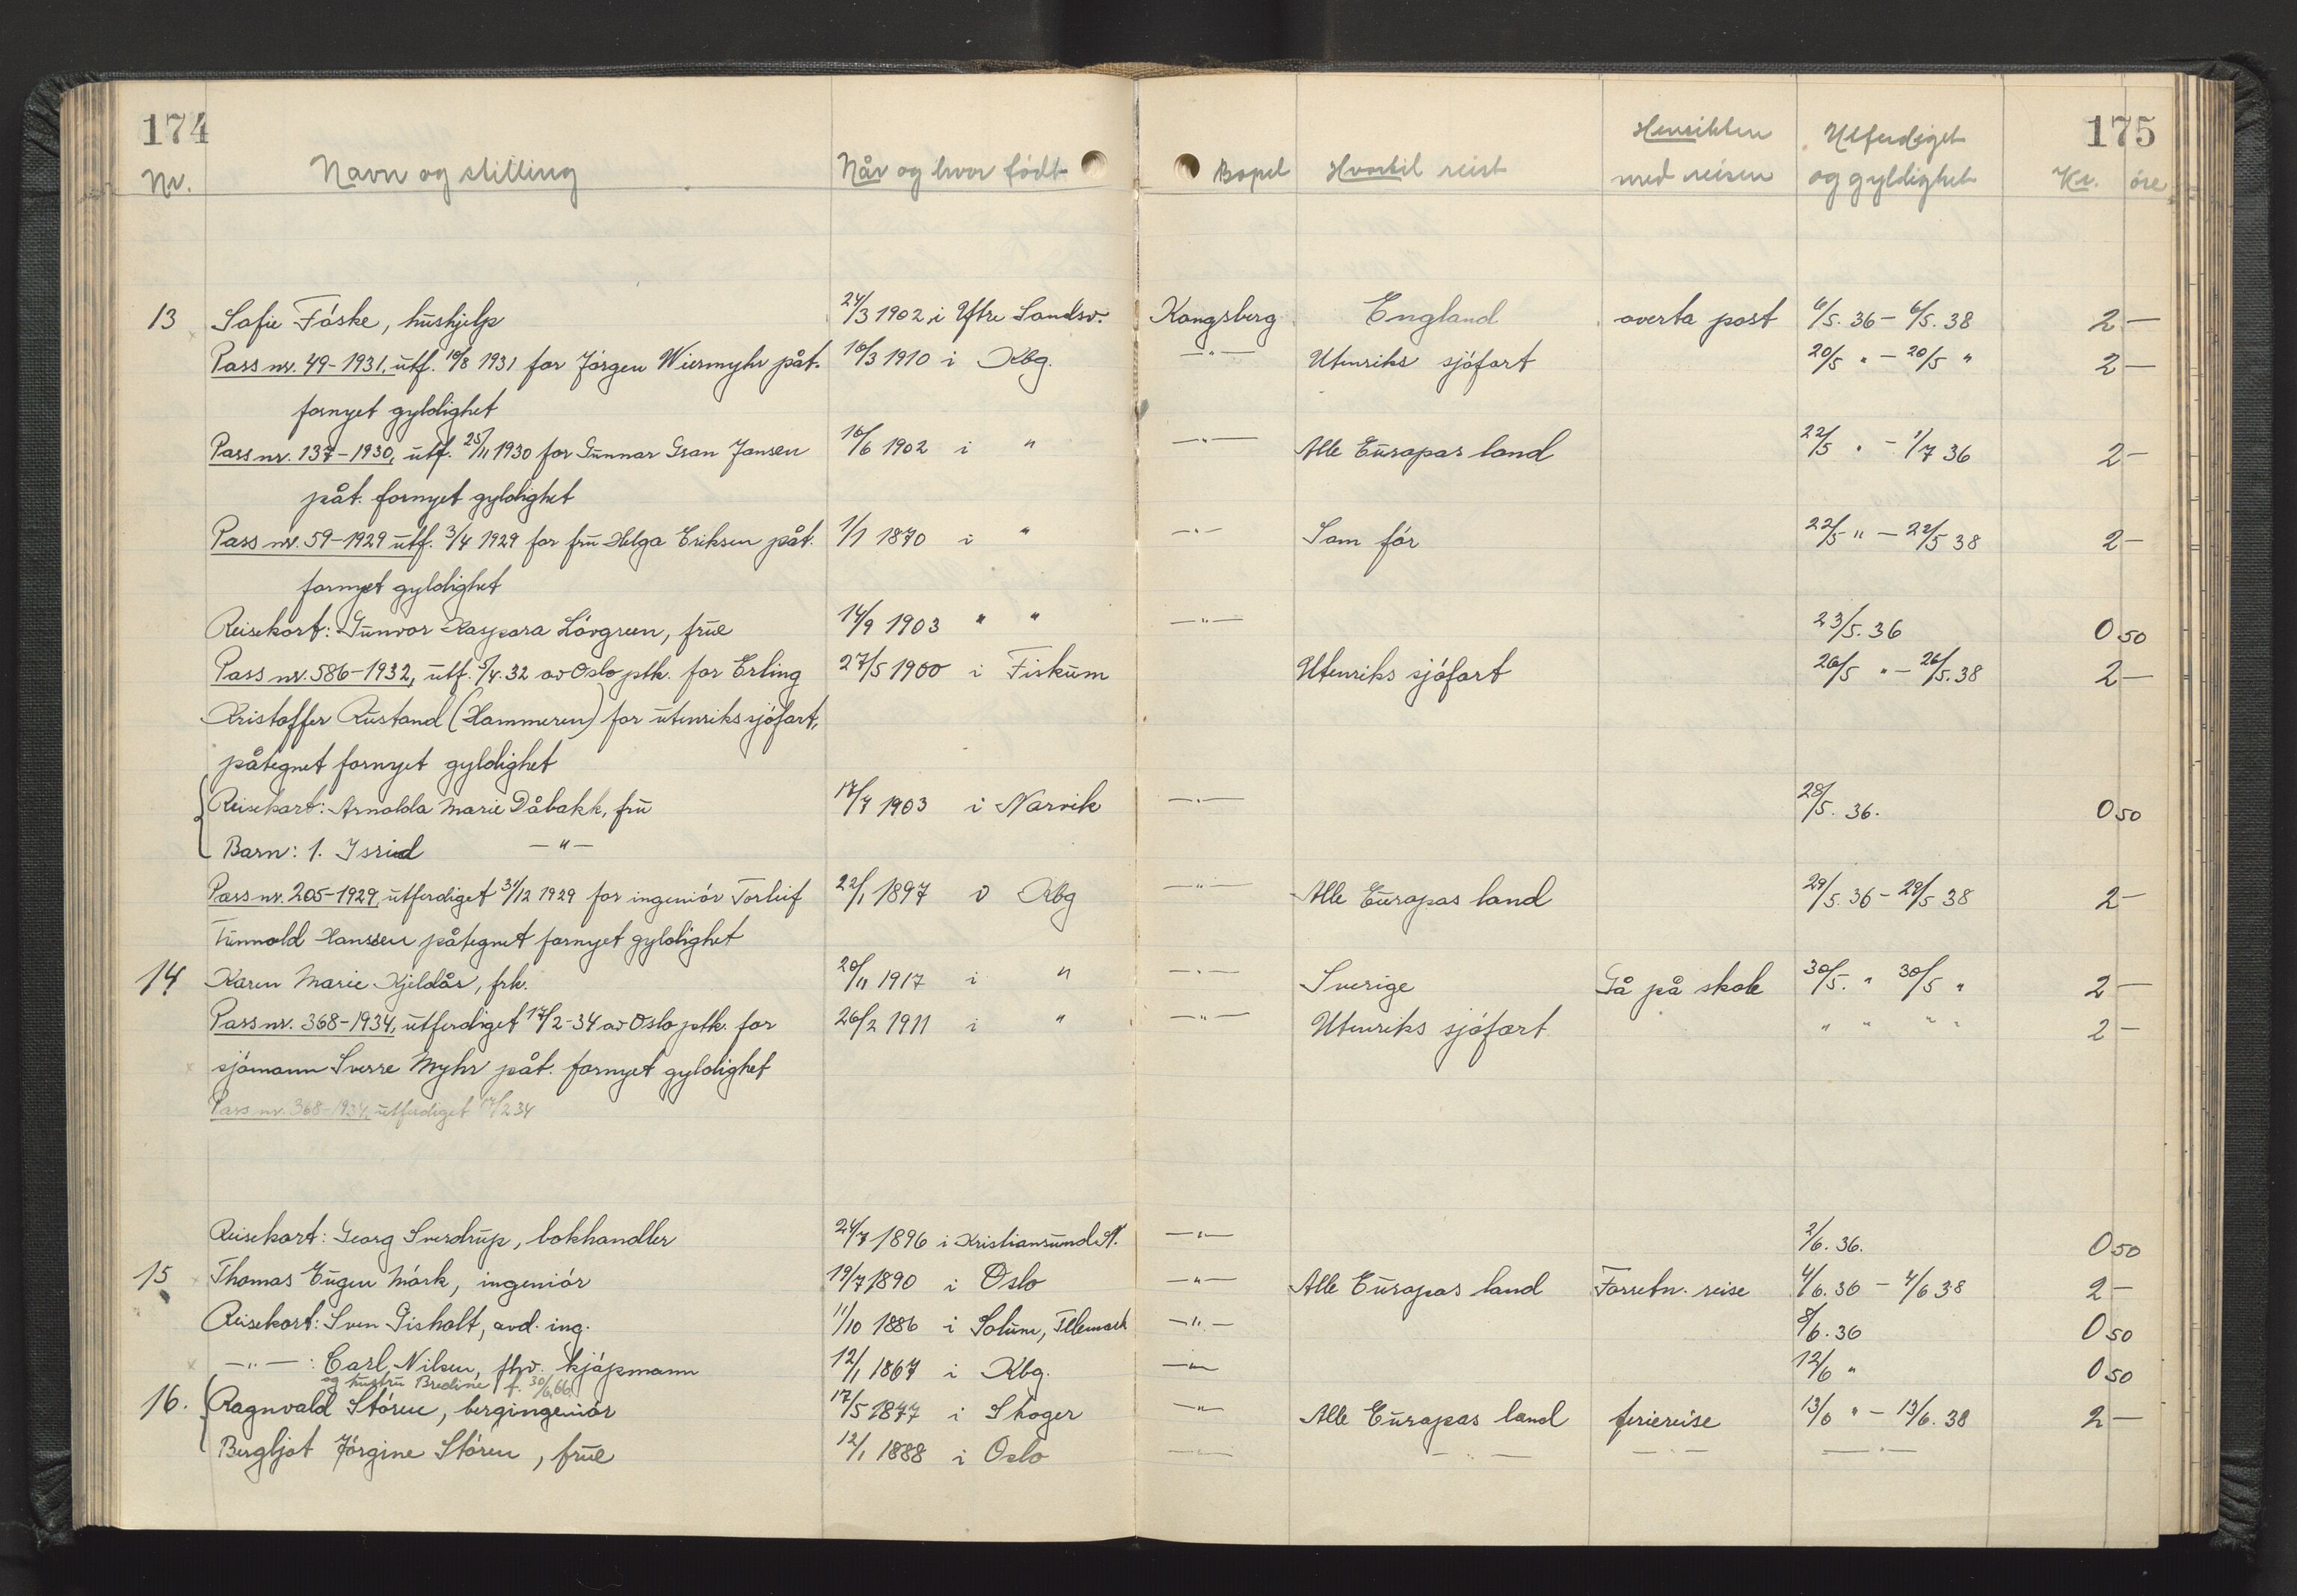 174
175
Hensikten Utferdiget
Nr. Navn og stilling Når og hvor født Bopel Hvortil reist med reisen og gyldighet Kr. øre
13 Sofie Fóske, hushjelp 24/3 1902 i Yttre Sandsv. Kongsberg England overta post 6/5.36 - 6/5.38 2 -
Pass nr. 49-1931, utf. 10/8 1931 for Jórgen Wiermyhr påt. 10/3 1910 i Kbg. -"- Utenriks sjófart 20/5 " - 20/5 " 2 -
fornyet gyldighet
Pass nr. 137-1930, utf. 25/11 1930 for Gunnar Gran Jansen 10/6 1902 i " -"- Alle Europas land 22/5 " - 1/7 36 2 -
påt. fornyet gyldighet
Pass nr. 59-1929 utf. 3/4 1929 for fru Helga Eriksen påt. 1/1 1870 i " -"- Som fór 22/5 " - 22/5 38 2 -
fornyet gyldighet
Reisekort: Gunvor Kaspara Lóvgreen, frue 14/9 1903 " " -"- 23/5.36 0 50
Pass nr. 586-1932, utf. 5/4.32 av Oslo ptk. for Erling 27/5 1900 i Fiskum Utenriks sjófart 26/5 " - 26/5.38 2 -
Kristoffer Rustand (Hammeren) for utenrikssjófart,
påtegnet fornyet gyldighet
Reisekort: Arnolda Marie Dåbakk, fru 17/7 1903 i Narvik -"- 28/5.36. 0 50
Barn: 1. Isrid -"-
Pass nr. 205-1929, utferdiget 31/12 1929 for ingeniór Torleif 22/1 1897 i Kbg -"- Alle Europas land 29/5.36 - 29/5 38 2 -
Tinnold Hanssen påtegnet fornyet gyldighet
14 Karen Marie Kjeldås, frk. 20/11 1917 i " -"- Sverige Gå på skole 30/5. " 30/5 " 2 -
Pass nr. 368-1934, utferdiget 17/2-34 av Oslo ptk. for 26/2 1911 i " -"- Utenriks sjófart " " " " 2 -
sjómann Sverre Myhr påt. fornyet gyldighet
Pass nr. 368-1934, utferdiget 17/2 34
Reisekort: Georg Sverdrup, bokhandler 24/7 1896 i Kristiansund N. -"- 2/6.36. 0 50
15 Thomas Eugen Mórk, ingeniór 19/7 1890 i Oslo -"- Alle Europas land Forretn. reise 4/6.36 - 4/6 38 2 -
Reisekort: Sven Gisholt, avd. ing. 11/10 1886 i Solum, Telemark -"- 8/6.36 0 50
-"-: Carl Nilsen, fhv. kjópmann 12/1 1867 i Kbg. -"- 12/6 " 0 50
og hustru Bredine f. 30/6.66.
16. Ragnvald Stóren, bergingeniór 17/5 1877 i Skoger -"- Alle Europas land feriereise 13/6 " - 13/6.38 2 -
Bergljot Jórgine Stóren, frue 12/1 1888 i Oslo -"- -"- -"- -"-